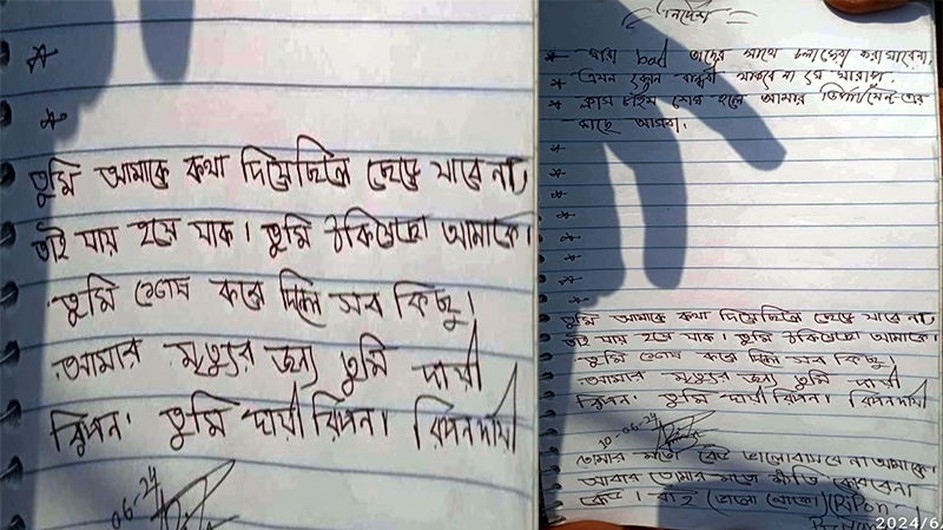 তুমি আমাকে কথা দিয়েছিলে ছেড়ে যাবে না,
তাই যায় হয়ে যাক। তুমি ঠকিয়েছো আমাকে।
তুমি শেষ করে দিলে সব কিছু।
আমার মৃত্যুর জন্য তুমি দায়ী
রিপন। তুমি দায়ী রিপন। রিপন দায়ী
06-24
নির্দেশ
* যারা bad তাদের সাথে চলাফেরা করা যাবেনা।
* এমন বান্ধবী থাকবে না যে খারাপ।
* ক্লাস টাইম শেষ হলে আমার ডিপার্টমেন্ট এর
কাছে আসবা।
তুমি আমাকে কথা দিয়েছিলে ছেড়ে যাবে না,
তাই যায় হয়ে যাক। তুমি ঠকিয়েছো আমাকে।
তুমি শেষ করে দিলে সব কিছু।
আমার মৃত্যুর জন্য তুমি দায়ী
রিপন। তুমি দায়ী রিপন। রিপন দায়ী
10-06-24
তোমার মতো কেউ ভালোবাসবে না আমাকে।
আবার তোমার মতো ক্ষতি করবেনা
কেউ। ভালো থেকো (RiPon
2024/6